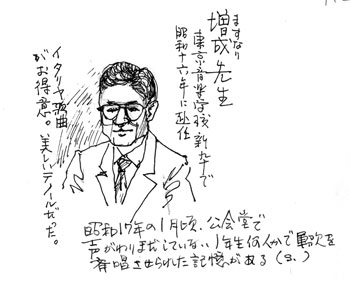 ますなり
増成先生
東京音楽学校新卆で
昭和十六年に赴任
イタリヤ歌曲
がお得意。美しいテノールだった。
昭和17年の1月頃、公会堂で
声がわりまだしていない1年生何人かで軍歌を
斉唱させられた記憶がある(S.)